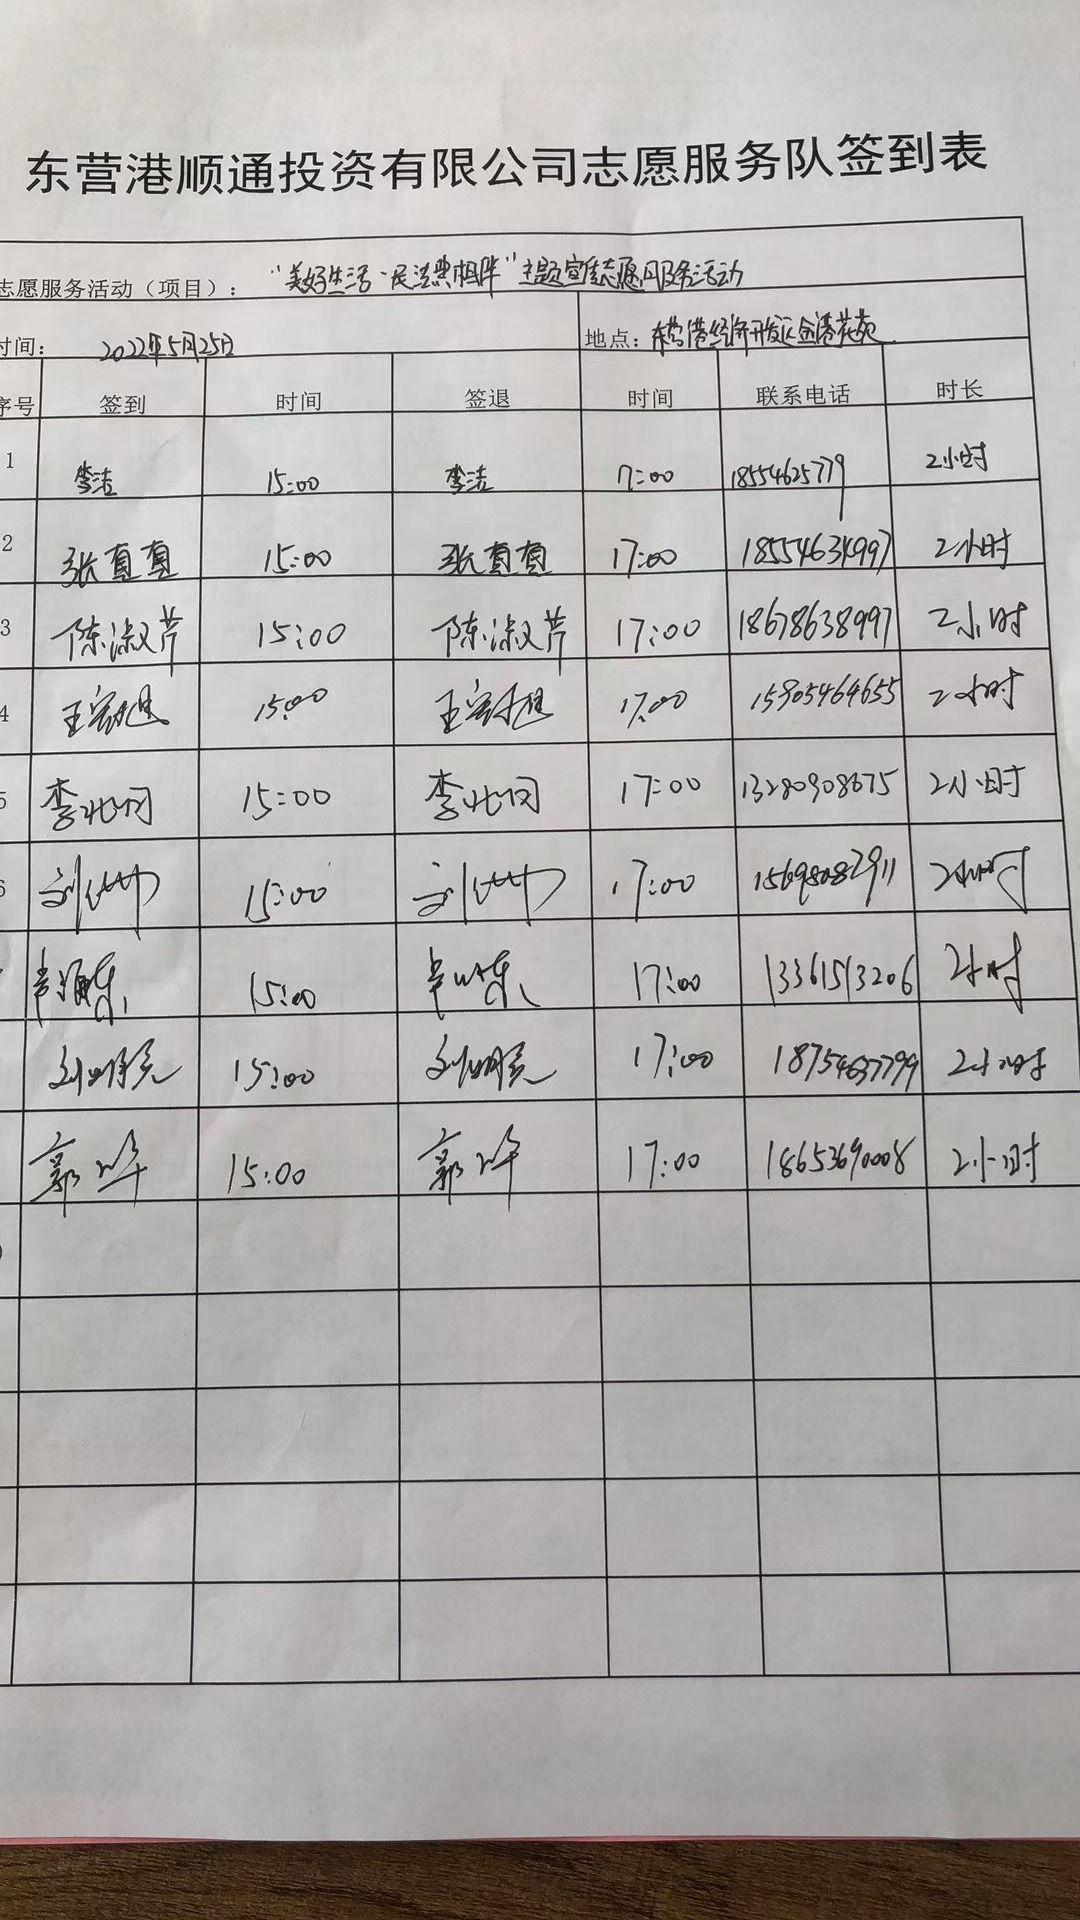 东营港顺通投资有限公司志愿服务队签到表
志愿服务活动（项目）： “美好生活·民法典相伴”主题宣传志愿服务活动
时间： 2022年5月25日 地点：东营港经济开发区金港花苑
序号 签到 时间 签退 时间 联系电话 时长
1 李洁 15:00 李洁 17:00 18554625779 2小时
2 张真真 15:00 张真真 17:00 18554634997 2小时
3 陈淑芹 15:00 陈淑芹 17:00 18678638997 2小时
4 15:00 17:00 15905464655 2小时
5 李兆同 15:00 李兆同 17:00 13280908675 2小时
6 15:00 17:00 15698082911 2小时
15:00 17:00 13361513206 2小时
15:00 17:00 18754637799 2小时
郭峰 15:00 郭峰 17:00 18653690008 2小时